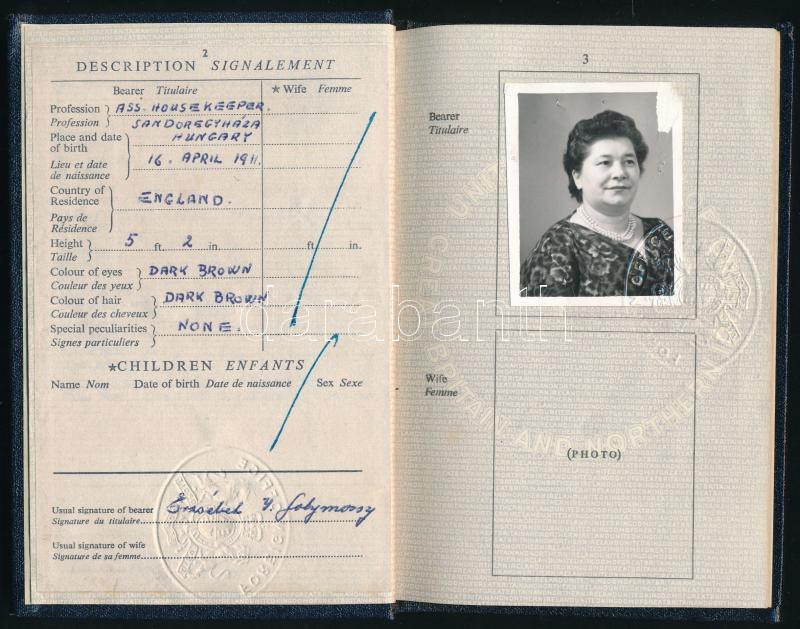 2
DESCRIPTION SIGNALEMENT
Bearer Titulaire
* Wife Femme
Profession
Profession
ASS. HOUSEKEEPER.
Place and date of birth
SANDOREGYHÁZA
HUNGARY
Lieu et date de naissance
16. APRIL 1911.
Country of Residence
Pays de Résidence
ENGLAND.
Height
Taille
5 ft. 2 in.
ft. in.
Colour of eyes
Couleur des yeux
DARK BROWN
Colour of hair
Couleur des cheveux
DARK BROWN
Special peculiarities
Signes particuliers
NONE.
*CHILDREN ENFANTS
Name Nom Date of birth Date de naissance Sex Sexe
Usual signature of bearer
Signature du titulaire
Usual signature of wife
Signature de sa femme
3
Bearer
Titulaire
Wife
Femme
(PHOTO)
BRITAIN AND NORTHERN
darabanth